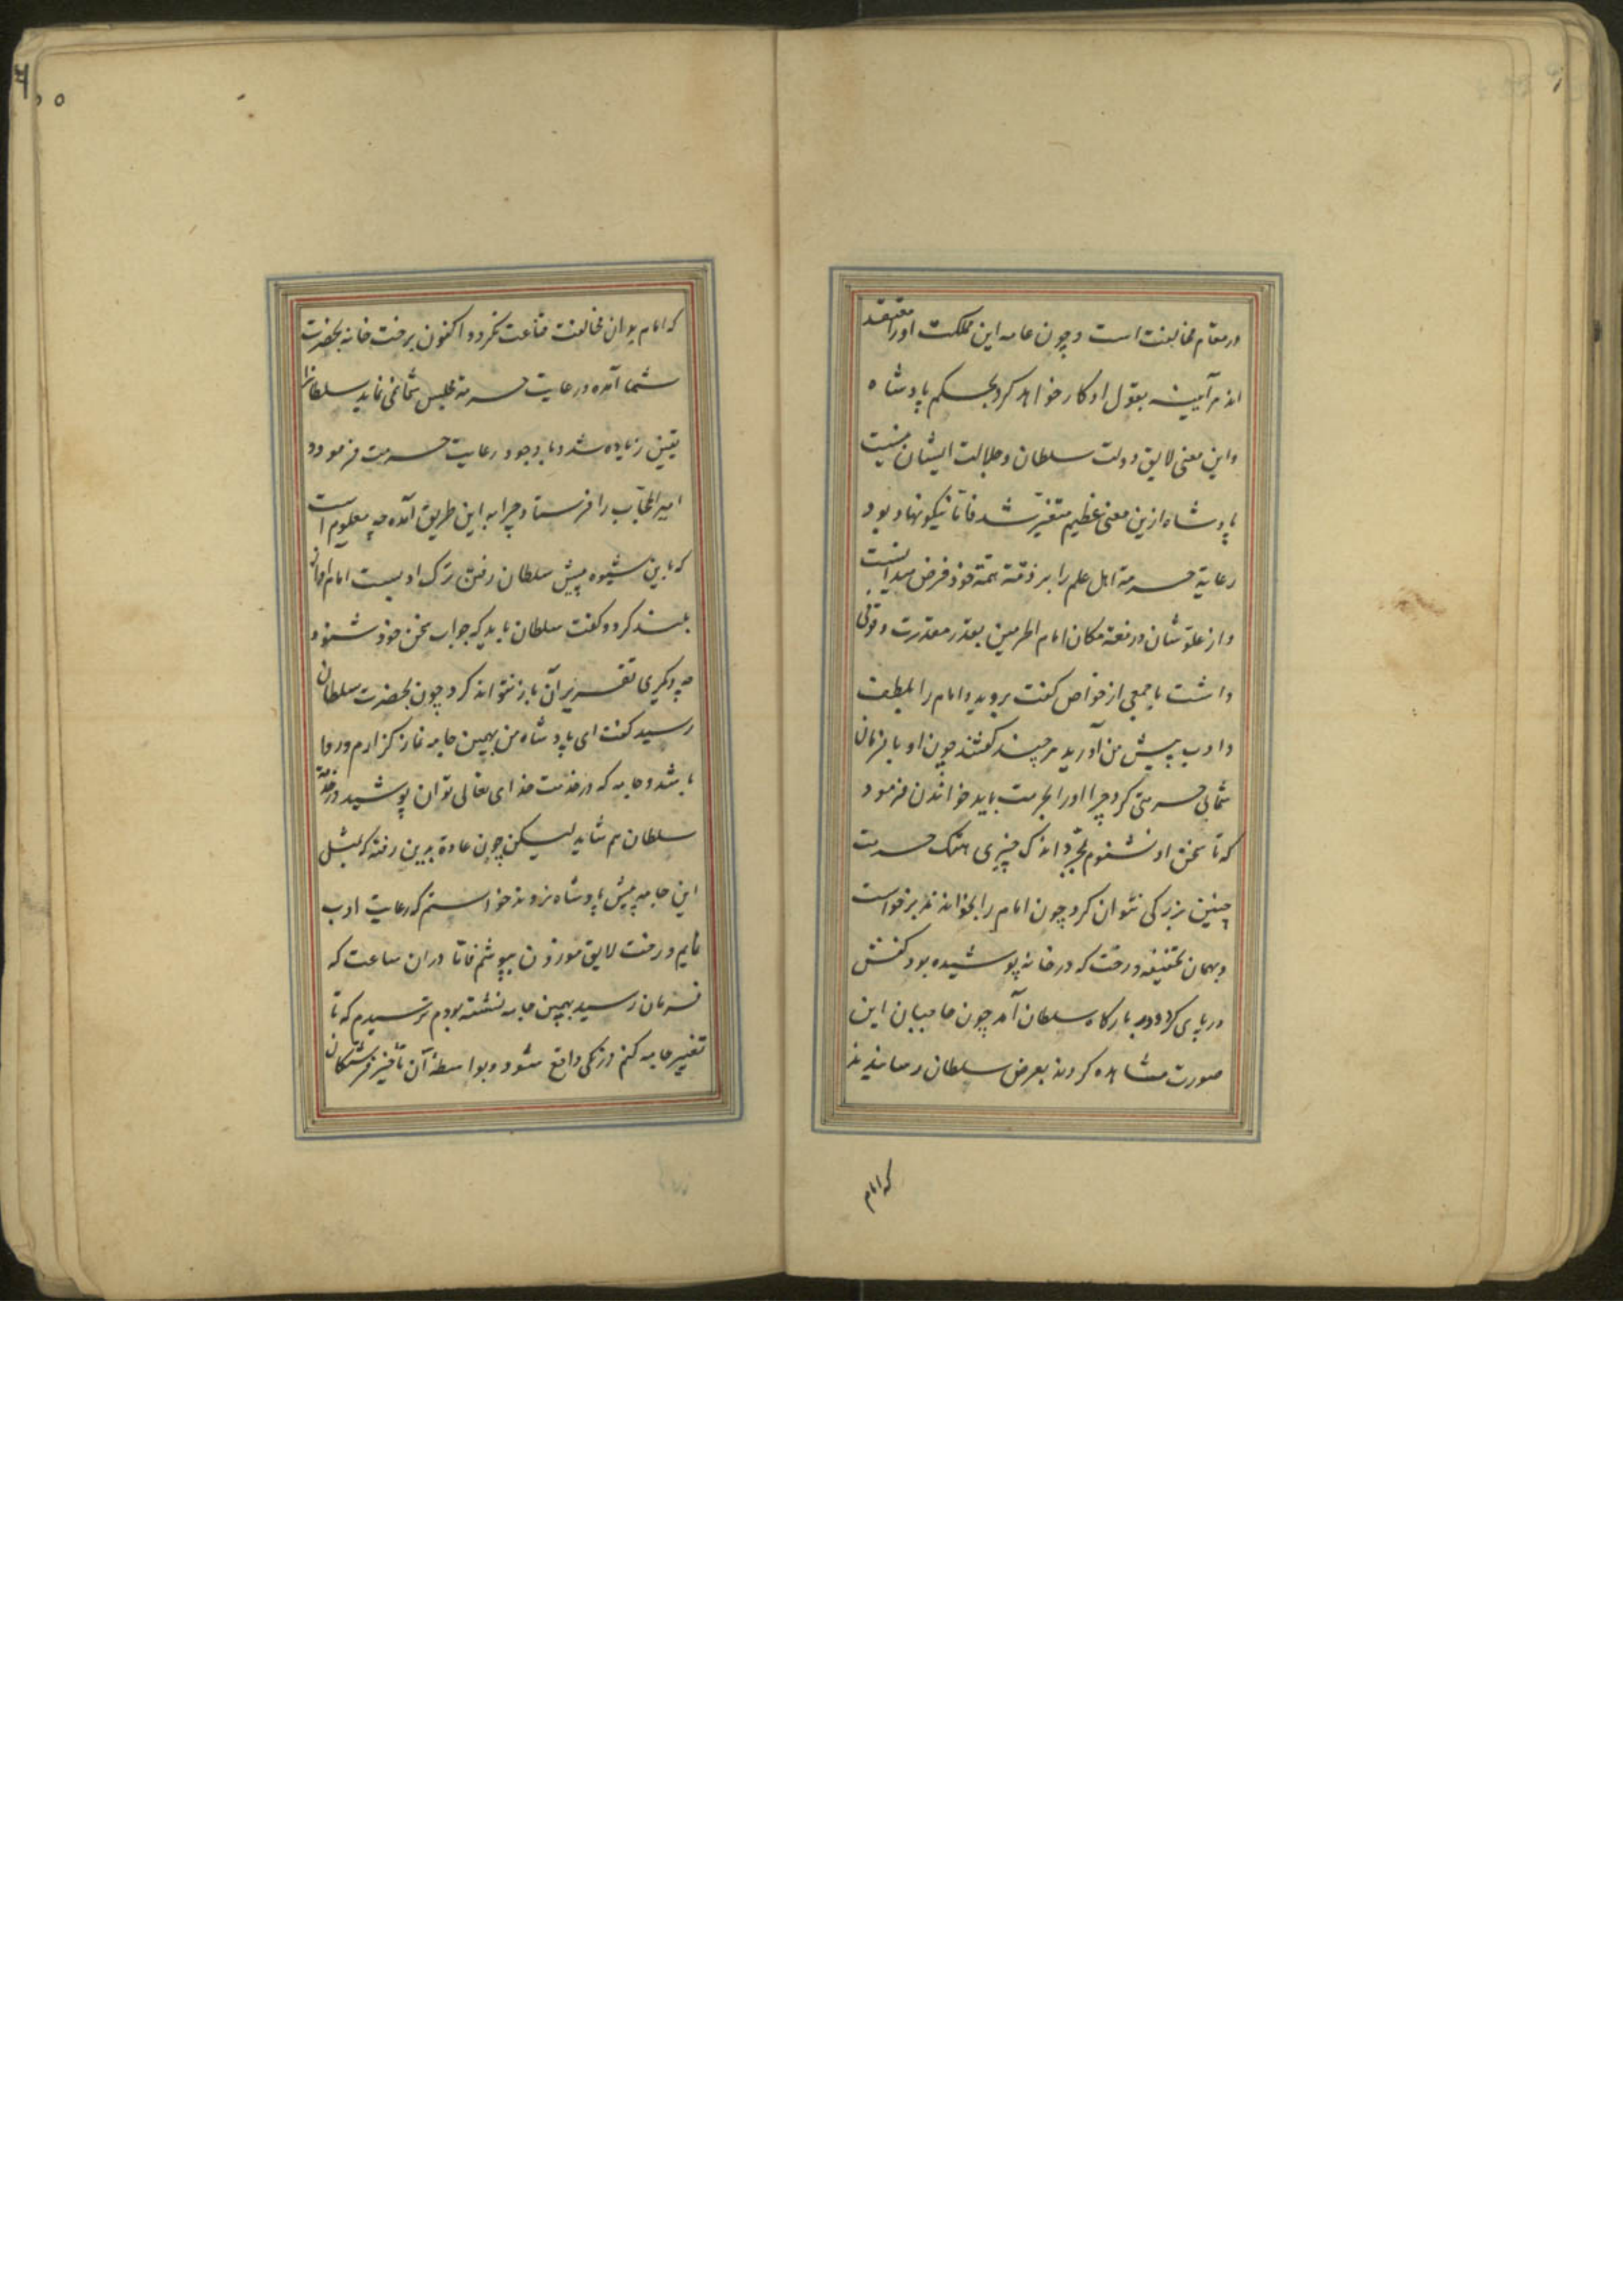 در مقام مخالفت است و چون عامه این مملکت او را معتقد
اند هر آینه بقول او کار خواهد کرد بحکم پادشاه
و این معنی لایق دولت سلطان و جلالت ایشان نیست
پادشاه ازین معنی عظیم متغیر شد فاتا نیکونهاد بود
رعایة حرمة اهل علم را بر ذمّة همّة خوذ فرض میدانست
و از علوّ شان و رفعة مکان امام الحرمین بقدر مقدرت وقوفی
داشت با جمعی از خواص کفت بروید و امام را بلطف
و ادب پیش من آورید هر چند کفتند چون او با فرمان
شما بی حرمتی کرد چرا او را بحرمت باید خواندن فرمود
که تا سخن او نشنوم بمجرد اندک چیزی هتک حرمت
چنین بزرکی نتوان کرد چون امام را بخواندند برخواست
و بهمان تخفیفه و رخت که در خانه پوشیده بود کفش
در پای کرد و در بارکاه سلطان آمد چون حاجبان این
صورت مشاهده کردند بعرض سلطان رسانیدند
که امام
که امام بدان مخالفت قناعت نکرد و اکنون برخت خانه بحضرت
شما آمده و رعایت حرمة مجلس شما نمی نماید سلطانرا
یقین زیاده شد و با وجود رعایت حرمت فرمود و
امیر الحجّاب را فرستاد چرا به این طریق آمده چه معلوم است
که باین شیوه پیش سلطان رفتن ترک ادبست امام اواز
بلند کرد و کفت سلطان باید که جواب سخن خوذ شنود
چه دیکری تقریر آن باز نتواند کرد چون بحضرت سلطان
رسید کفت ای پادشاه من بهمین جامه نماز کزارم و روا
باشد و جامه که در خدمت خذای تعالی توان پوشید در خدمة
سلطان هم شاید لیکن چون عادة بدین رفته که بمثل
این جامه پیش پادشاه نروند خواستم که رعایت ادب
نمایم و رخت لایق موزون بپوشم فاتا در ان ساعت که
فرمان رسید بهمین جامه نشسته بودم ترسیدم که تا
تغییر جامه کنم درنکی واقع شود و بواسطهٔ آن تأخیر فرشتکان